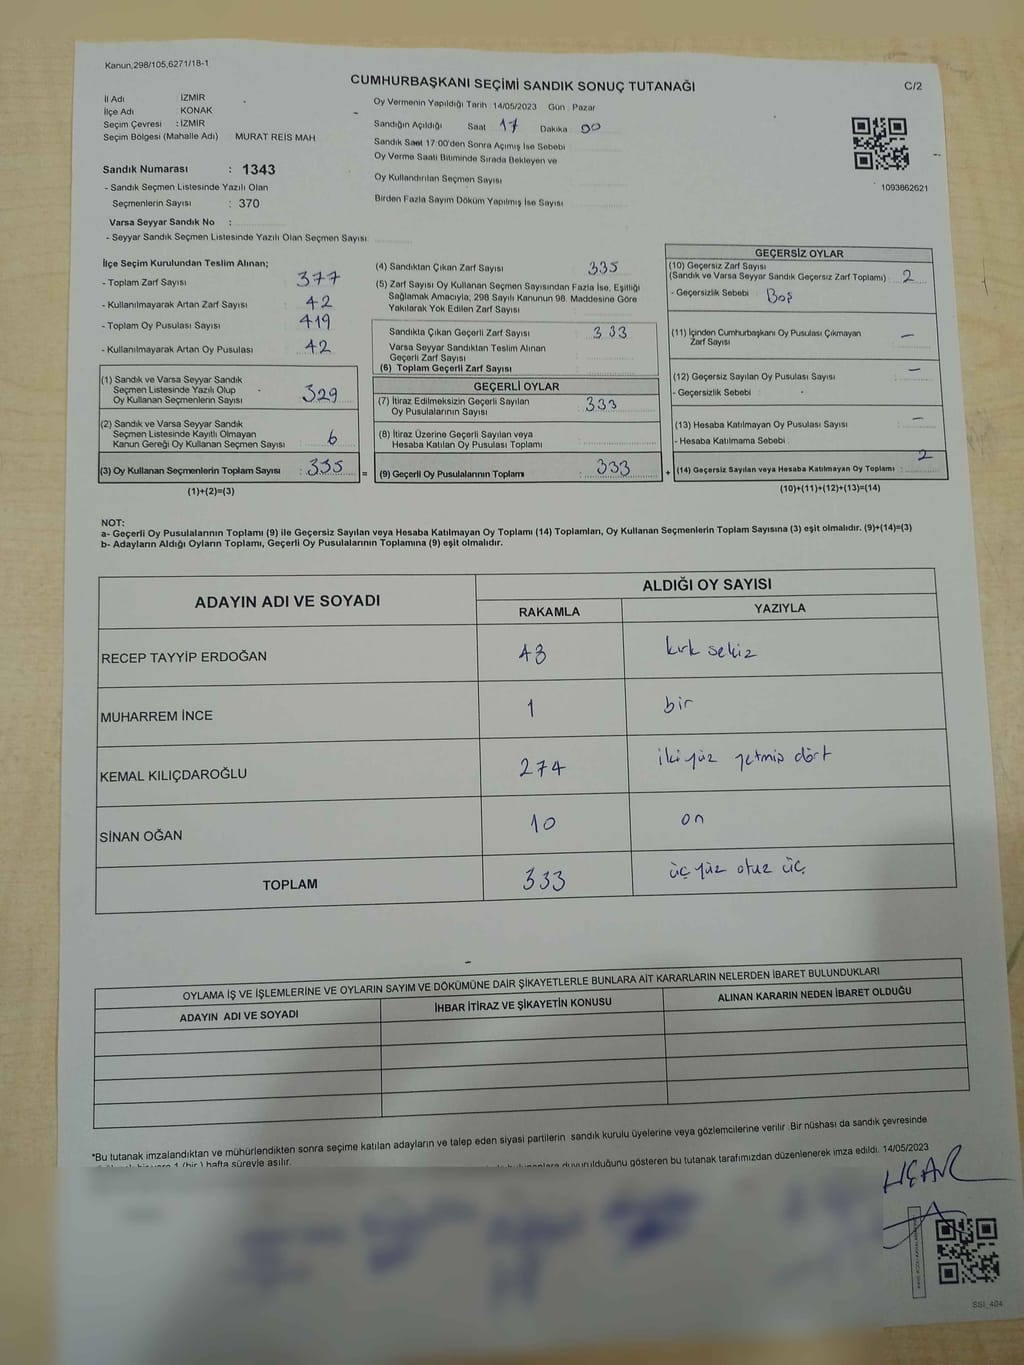 Kanun,298/105,6271/18-1
CUMHURBAŞKANI SEÇİMİ SANDIK SONUÇ TUTANAĞI
C/2
İl Adı İZMİR
İlçe Adı KONAK
Seçim Çevresi : İZMİR
Seçim Bölgesi (Mahalle Adı) MURAT REİS MAH
Sandık Numarası : 1343
- Sandık Seçmen Listesinde Yazılı Olan
Seçmenlerin Sayısı : 370
Varsa Seyyar Sandık No :
- Seyyar Sandık Seçmen Listesinde Yazılı Olan Seçmen Sayısı
Oy Vermenin Yapıldığı Tarih 14/05/2023 Gün . Pazar
Sandığın Açıldığı Saat 17 Dakika 00
Sandık Saat 17:00'den Sonra Açımış İse Sebebi
Oy Verme Saati Bitiminde Sırada Bekleyen ve
Oy Kullandırılan Seçmen Sayısı
Birden Fazla Sayım Döküm Yapılmış İse Sayısı
1093862621
İlçe Seçim Kurulundan Teslim Alınan;
- Toplam Zarf Sayısı : 377
- Kullanılmayarak Artan Zarf Sayısı : 42
- Toplam Oy Pusulası Sayısı : 419
- Kullanılmayarak Artan Oy Pusulası : 42
(1) Sandık ve Varsa Seyyar Sandık
Seçmen Listesinde Yazılı Olup
Oy Kullanan Seçmenlerin Sayısı : 329
(2) Sandık ve Varsa Seyyar Sandık
Seçmen Listesinde Kayıtlı Olmayan
Kanun Gereği Oy Kullanan Seçmen Sayısı : 6
(3) Oy Kullanan Seçmenlerin Toplam Sayısı : 335 =
(1)+(2)=(3)
(4) Sandıktan Çıkan Zarf Sayısı : 335
(5) Zarf Sayısı Oy Kullanan Seçmen Sayısından Fazla İse, Eşitliği
Sağlamak Amacıyla, 298 Sayılı Kanunun 98. Maddesine Göre
Yakılarak Yok Edilen Zarf Sayısı
Sandıkta Çıkan Geçerli Zarf Sayısı : 333
Varsa Seyyar Sandıktan Teslim Alınan
Geçerli Zarf Sayısı
(6) Toplam Geçerli Zarf Sayısı
GEÇERLİ OYLAR
(7) İtiraz Edilmeksizin Geçerli Sayılan
Oy Pusulalarının Sayısı : 333
(8) İtiraz Üzerine Geçerli Sayılan veya
Hesaba Katılan Oy Pusulası Toplamı
(9) Geçerli Oy Pusulalarının Toplamı : 333 +
GEÇERSİZ OYLAR
(10) Geçersiz Zarf Sayısı
(Sandık ve Varsa Seyyar Sandık Geçersiz Zarf Toplamı) : 2
- Geçersizlik Sebebi : Boş
(11) İçinden Cumhurbaşkanı Oy Pusulası Çıkmayan
Zarf Sayısı : –
(12) Geçersiz Sayılan Oy Pusulası Sayısı : –
- Geçersizlik Sebebi :
(13) Hesaba Katılmayan Oy Pusulası Sayısı : –
- Hesaba Katılmama Sebebi :
(14) Geçersiz Sayılan veya Hesaba Katılmayan Oy Toplamı : 2
(10)+(11)+(12)+(13)=(14)
NOT:
a- Geçerli Oy Pusulalarının Toplamı (9) ile Geçersiz Sayılan veya Hesaba Katılmayan Oy Toplamı (14) Toplamları, Oy Kullanan Seçmenlerin Toplam Sayısına (3) eşit olmalıdır. (9)+(14)=(3)
b- Adayların Aldığı Oyların Toplamı, Geçerli Oy Pusulalarının Toplamına (9) eşit olmalıdır.
ADAYIN ADI VE SOYADI ALDIĞI OY SAYISI
RAKAMLA YAZIYLA
RECEP TAYYİP ERDOĞAN 48 kırk sekiz
MUHARREM İNCE 1 bir
KEMAL KILIÇDAROĞLU 274 iki yüz yetmiş dört
SİNAN OĞAN 10 on
TOPLAM 333 üç yüz otuz üç
OYLAMA İŞ VE İŞLEMLERİNE VE OYLARIN SAYIM VE DÖKÜMÜNE DAİR ŞİKAYETLERLE BUNLARA AİT KARARLARIN NELERDEN İBARET BULUNDUKLARI
ADAYIN ADI VE SOYADI İHBAR İTİRAZ VE ŞİKAYETİN KONUSU ALINAN KARARIN NEDEN İBARET OLDUĞU
*Bu tutanak imzalandıktan ve mühürlendikten sonra seçime katılan adayların ve talep eden siyasi partilerin sandık kurulu üyelerine veya gözlemcilerine verilir .Bir nüshası da sandık çevresinde
1 (bir ) hafta süreyle asılır.
duyurulduğunu gösteren bu tutanak tarafımızdan düzenlenerek imza edildi. 14/05/2023
SSI_404